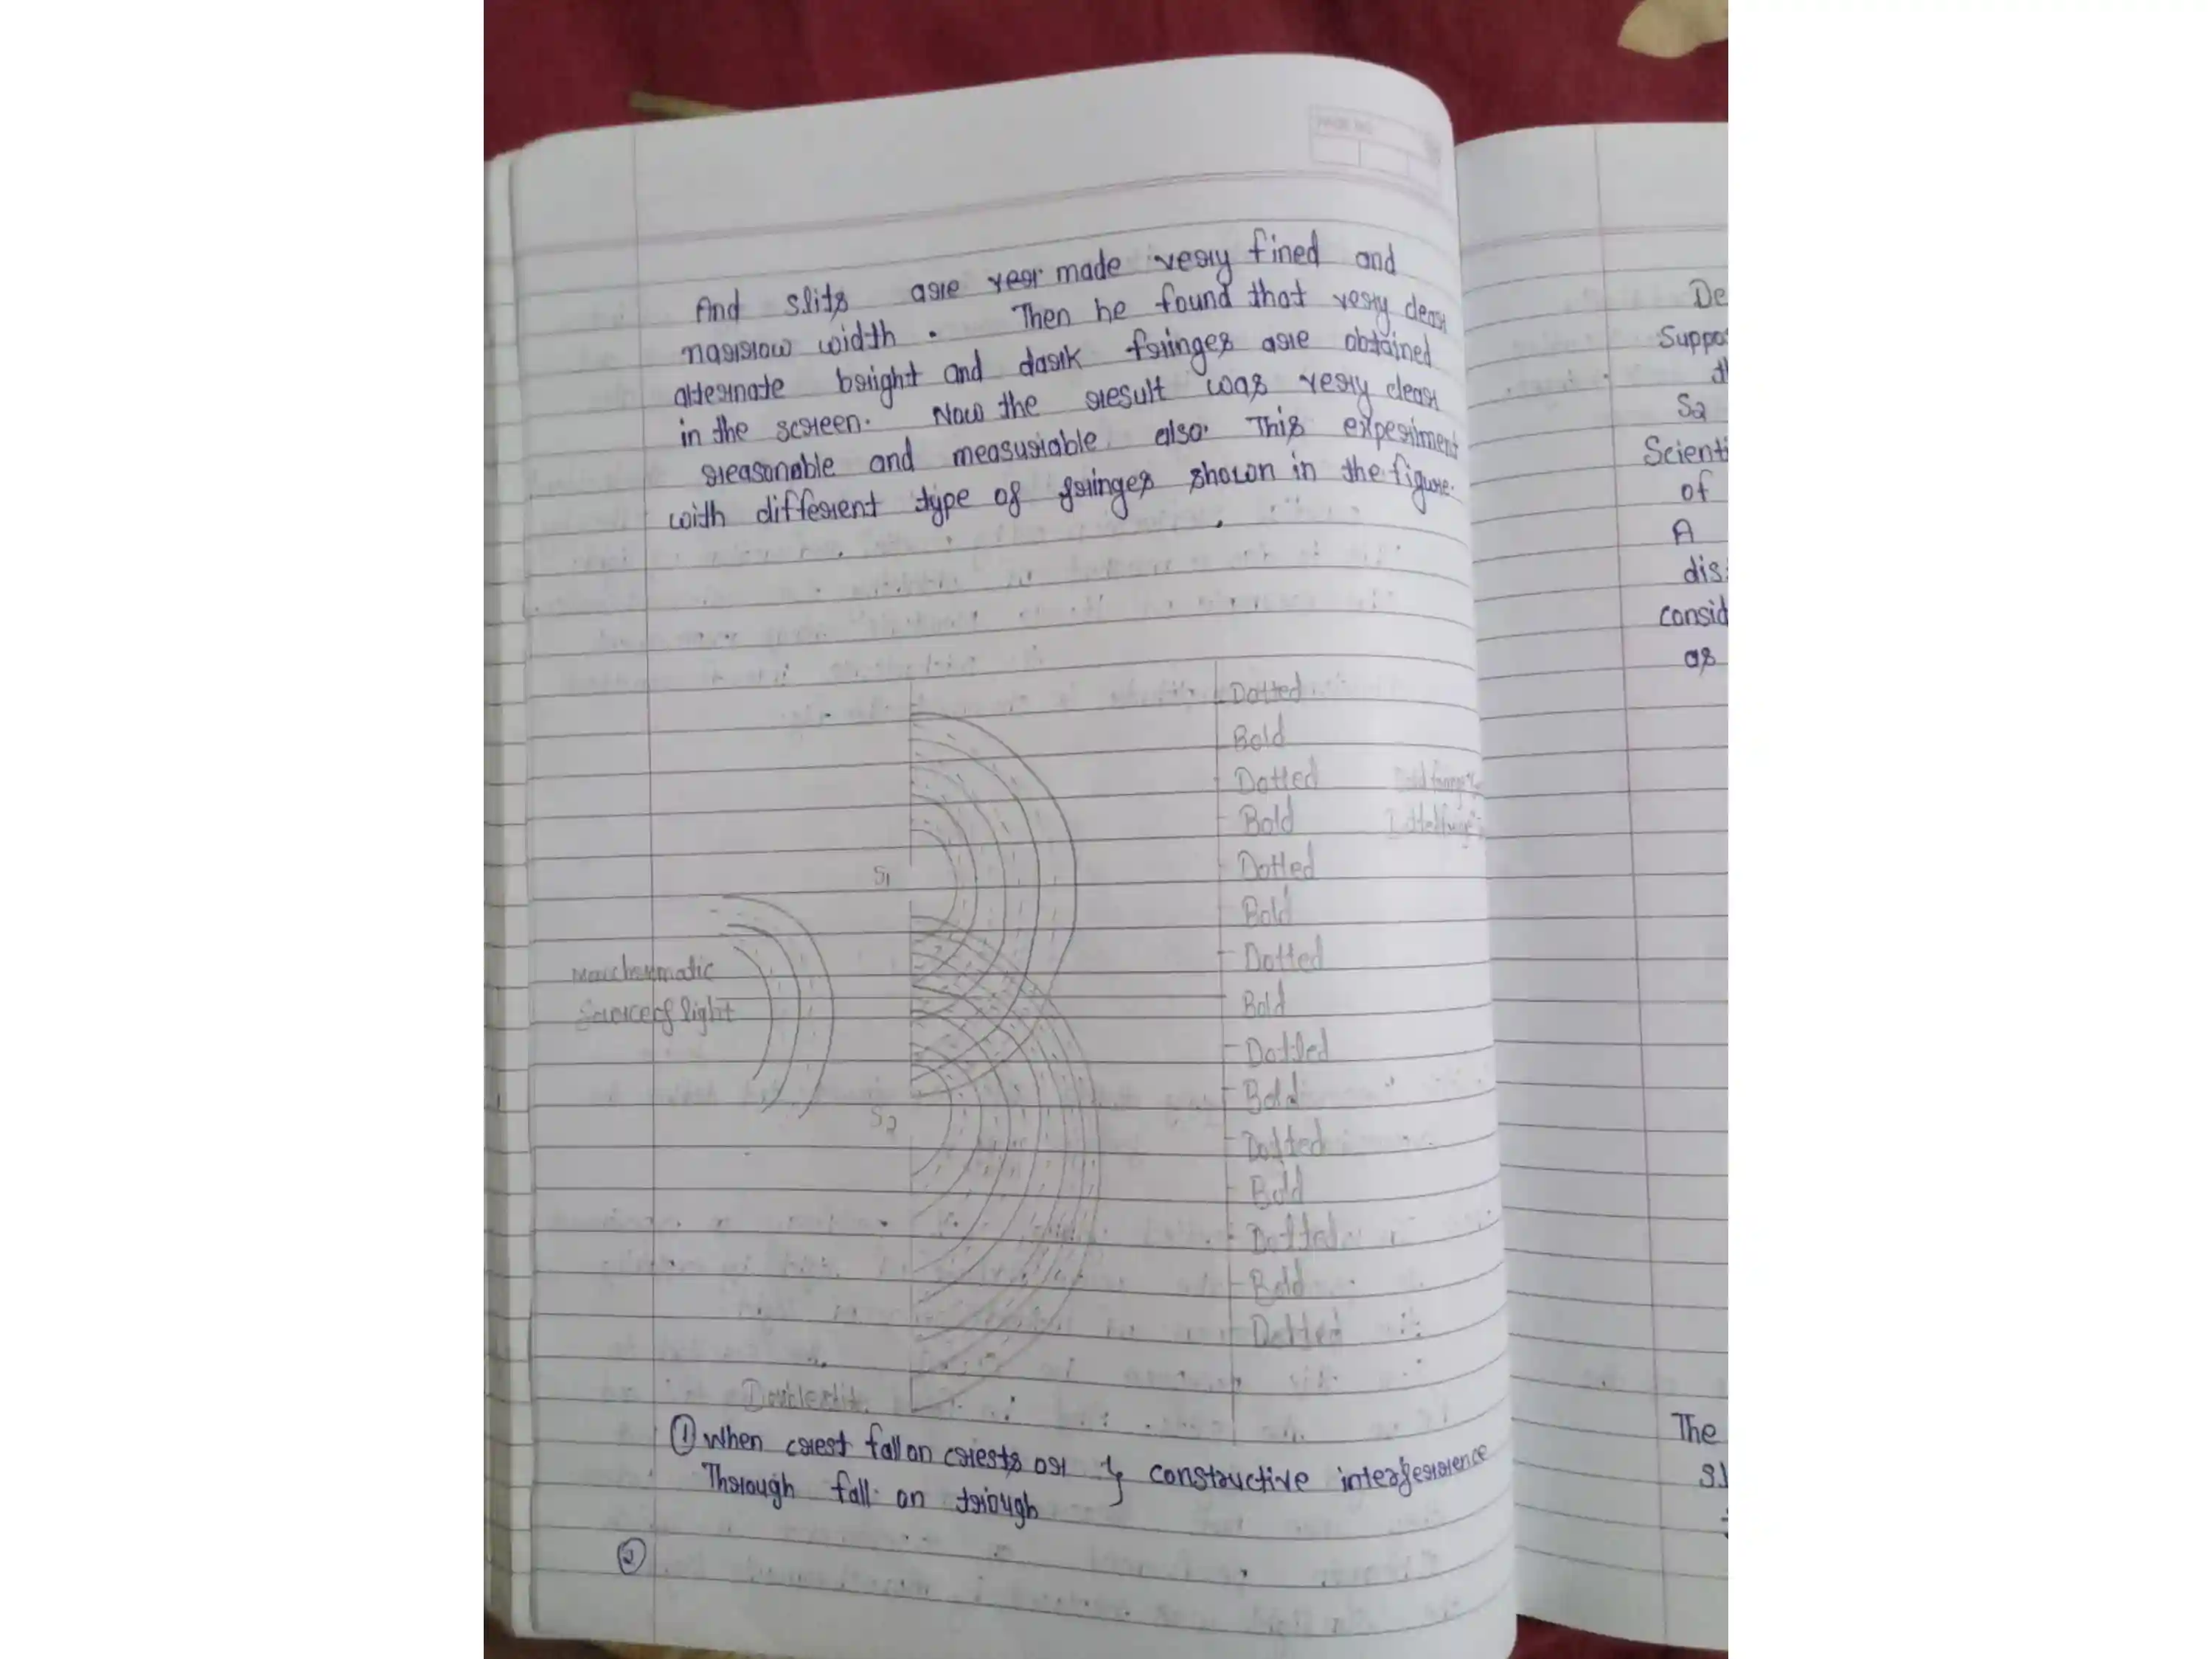 And slits are made very fined and
narrow width. Then he found that very clear
alternate bright and dark fringes are obtained
in the screen. Now the result was very clear
reasonable and measurable also. This experiment
with different type of fringes shown in the figure.
Dotted
Bold
Dotted
Bold
Dotted
Bold
Dotted
Bold
Dotted
Bold
Dotted
Bold
Dotted
Bold
Dotted
S1
S2
source of light
Double slit
① When crest fall on crests or } constructive interferrence
Through fall on trough
②
De
Suppo
th
S2
Scienti
of
A
dis
consid
as
The